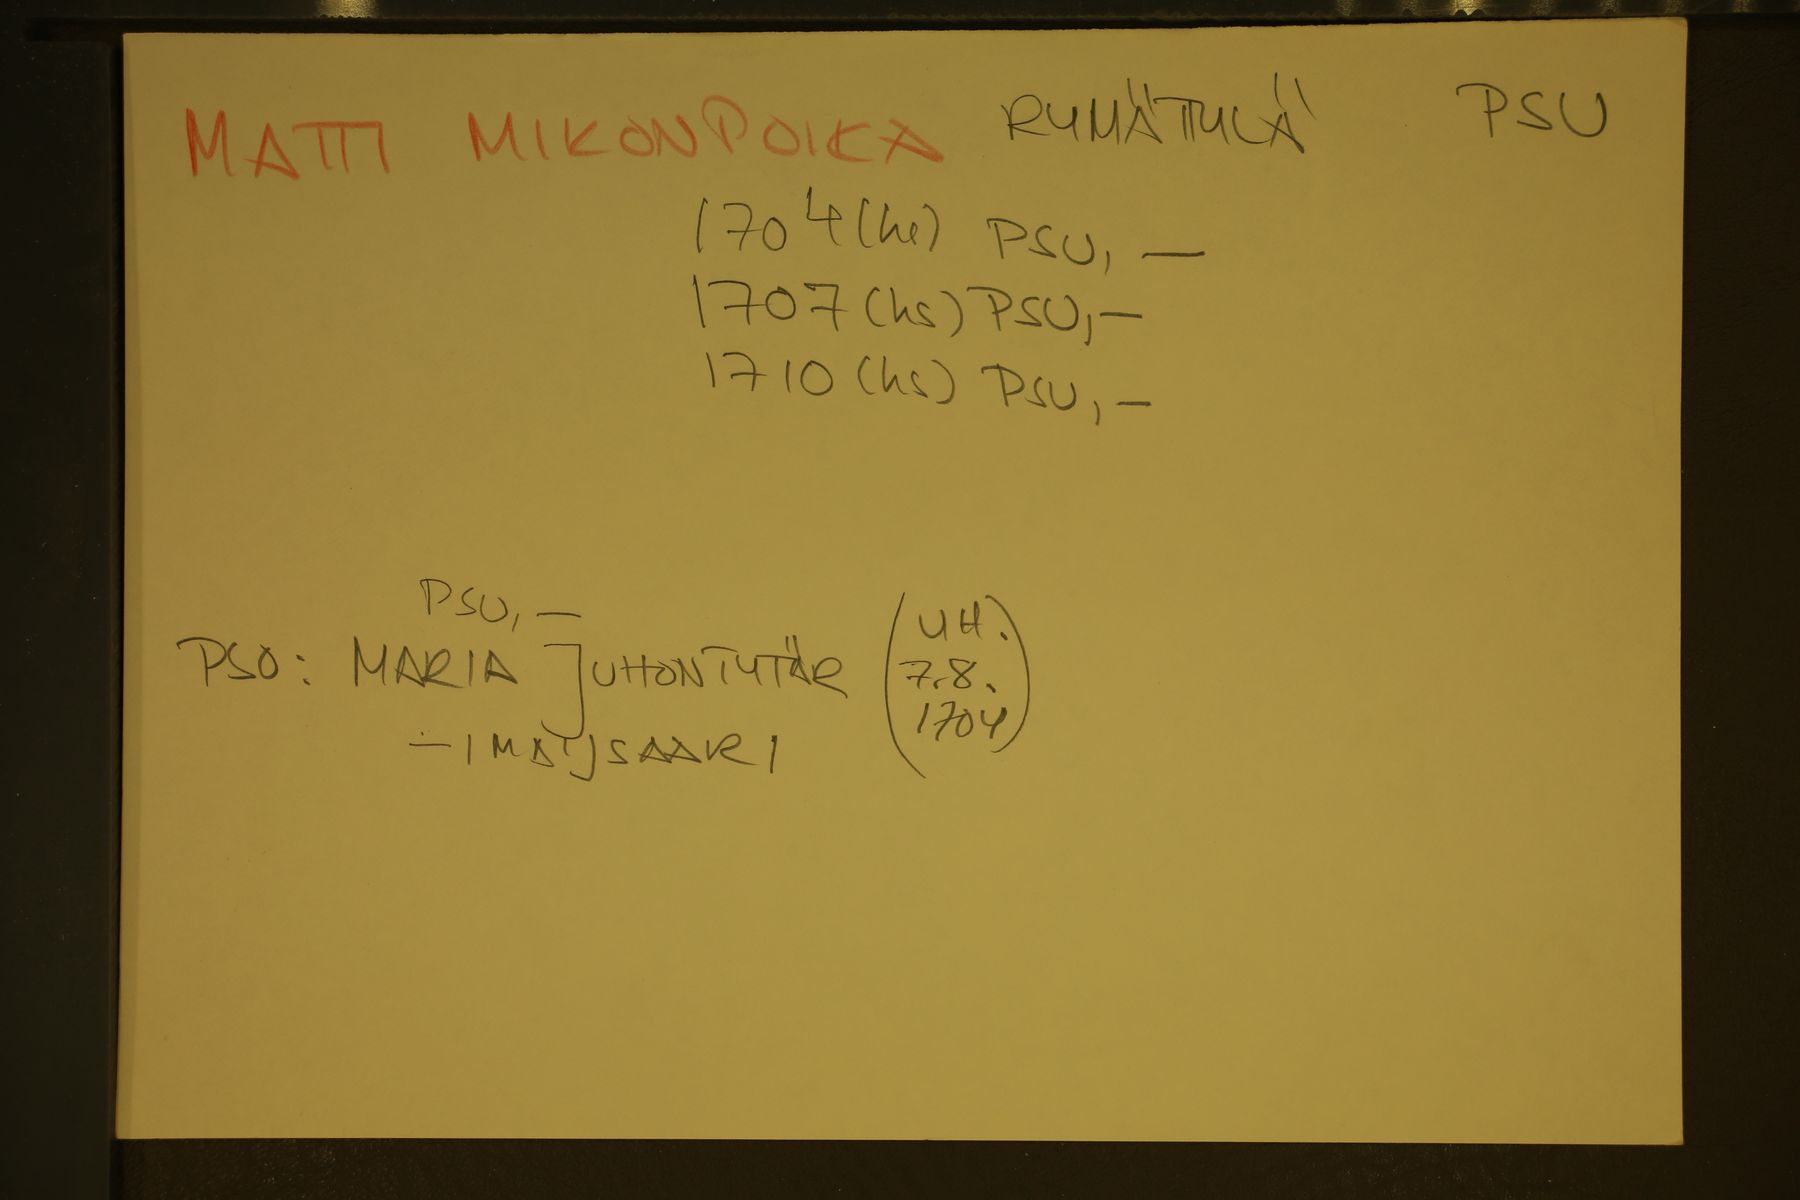 MATTI MIKONPOIKA RYMÄTTYLÄ PSU
1704 (hs) PSU, —
1707 (hs) PSU, —
1710 (hs) PSU, —
PSU, —
PSO: MARIA JUHONTYTÄR (UH. 7.8. 1704)